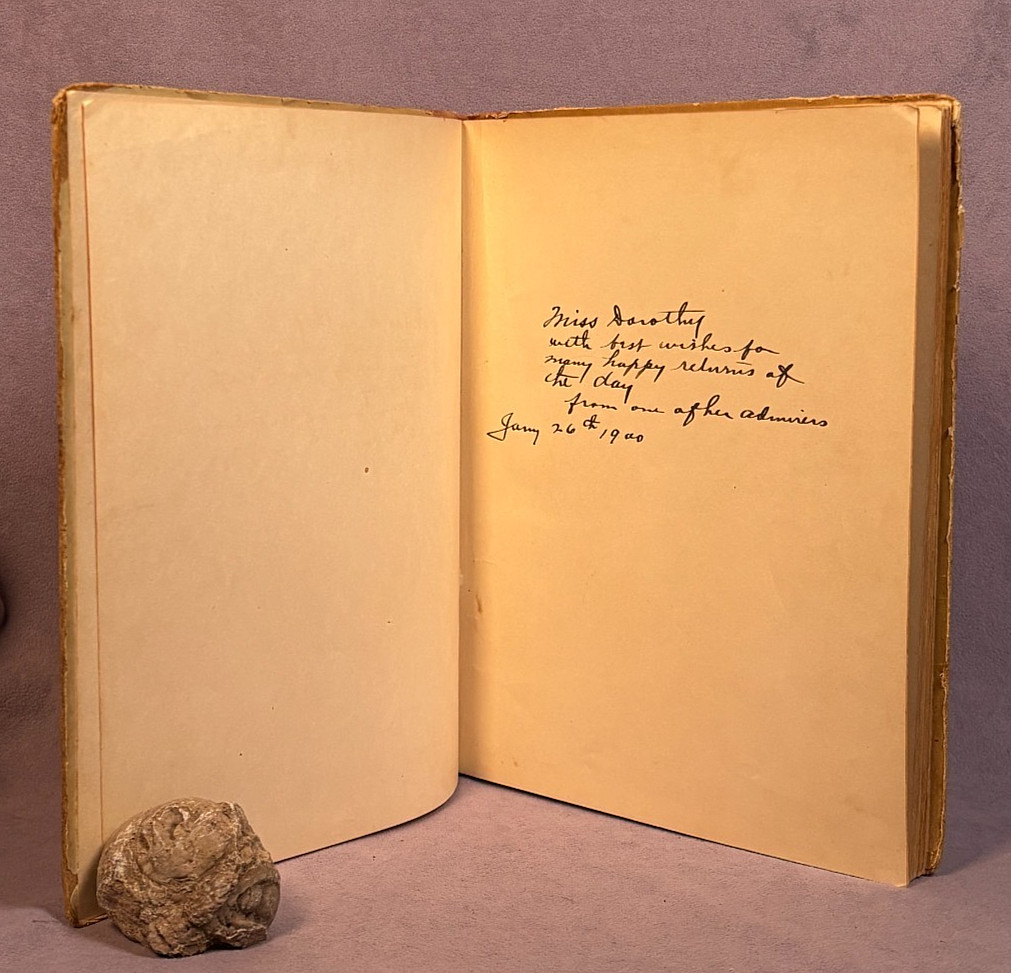 Miss Dorothy
with best wishes for
many happy returns of
the day
from one of her admirers
Jany 26th 1900